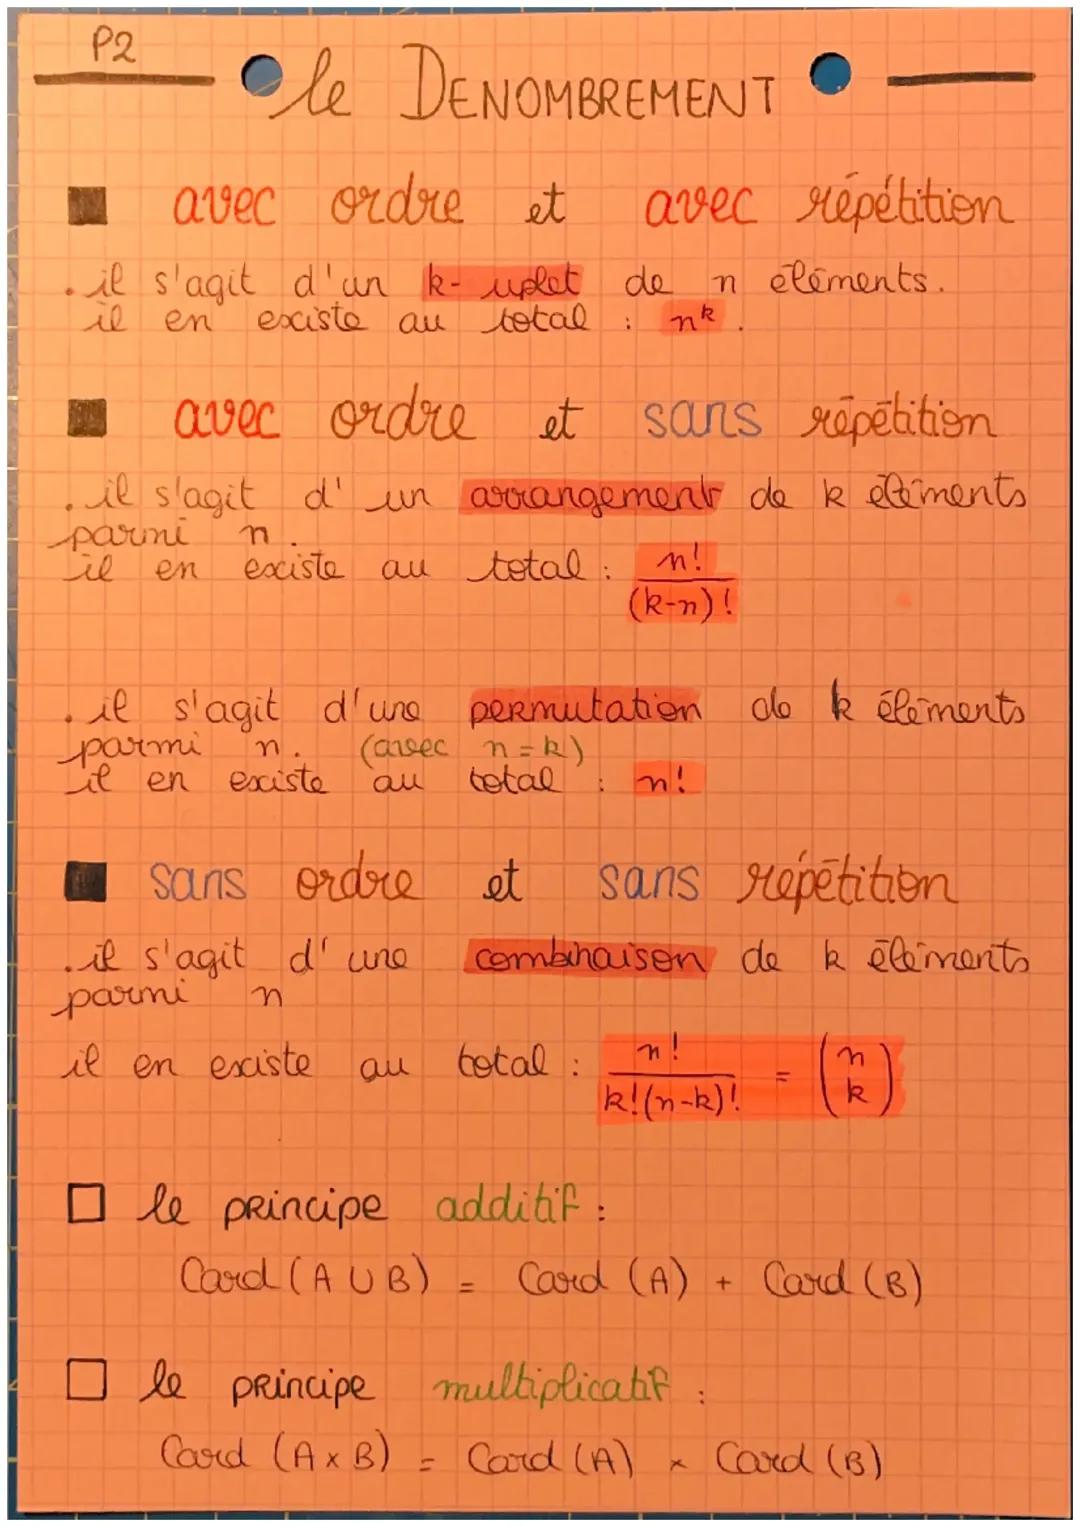 P2
le DENOMBREMENT
avec ordre et avec répétition
. il s'agit d'un k-uplet de n éléments.
il en existe au total : n^k.
avec ordre et sans répétition
. il s'agit d'un arrangement de k éléments
parmi n.
il en existe au total : n!/(k-n)!
. il s'agit d'une permutation de k éléments
parmi n. (avec n=k)
il en existe au total : n!
sans ordre et sans répétition
. il s'agit d'une combinaison de k éléments
parmi n
il en existe au total : n!/k!(n-k)! = (n k)
□ le principe additif :
Card (A ∪ B) = Card (A) + Card (B)
□ le principe multiplicatif :
Card (A × B) = Card (A) × Card (B)